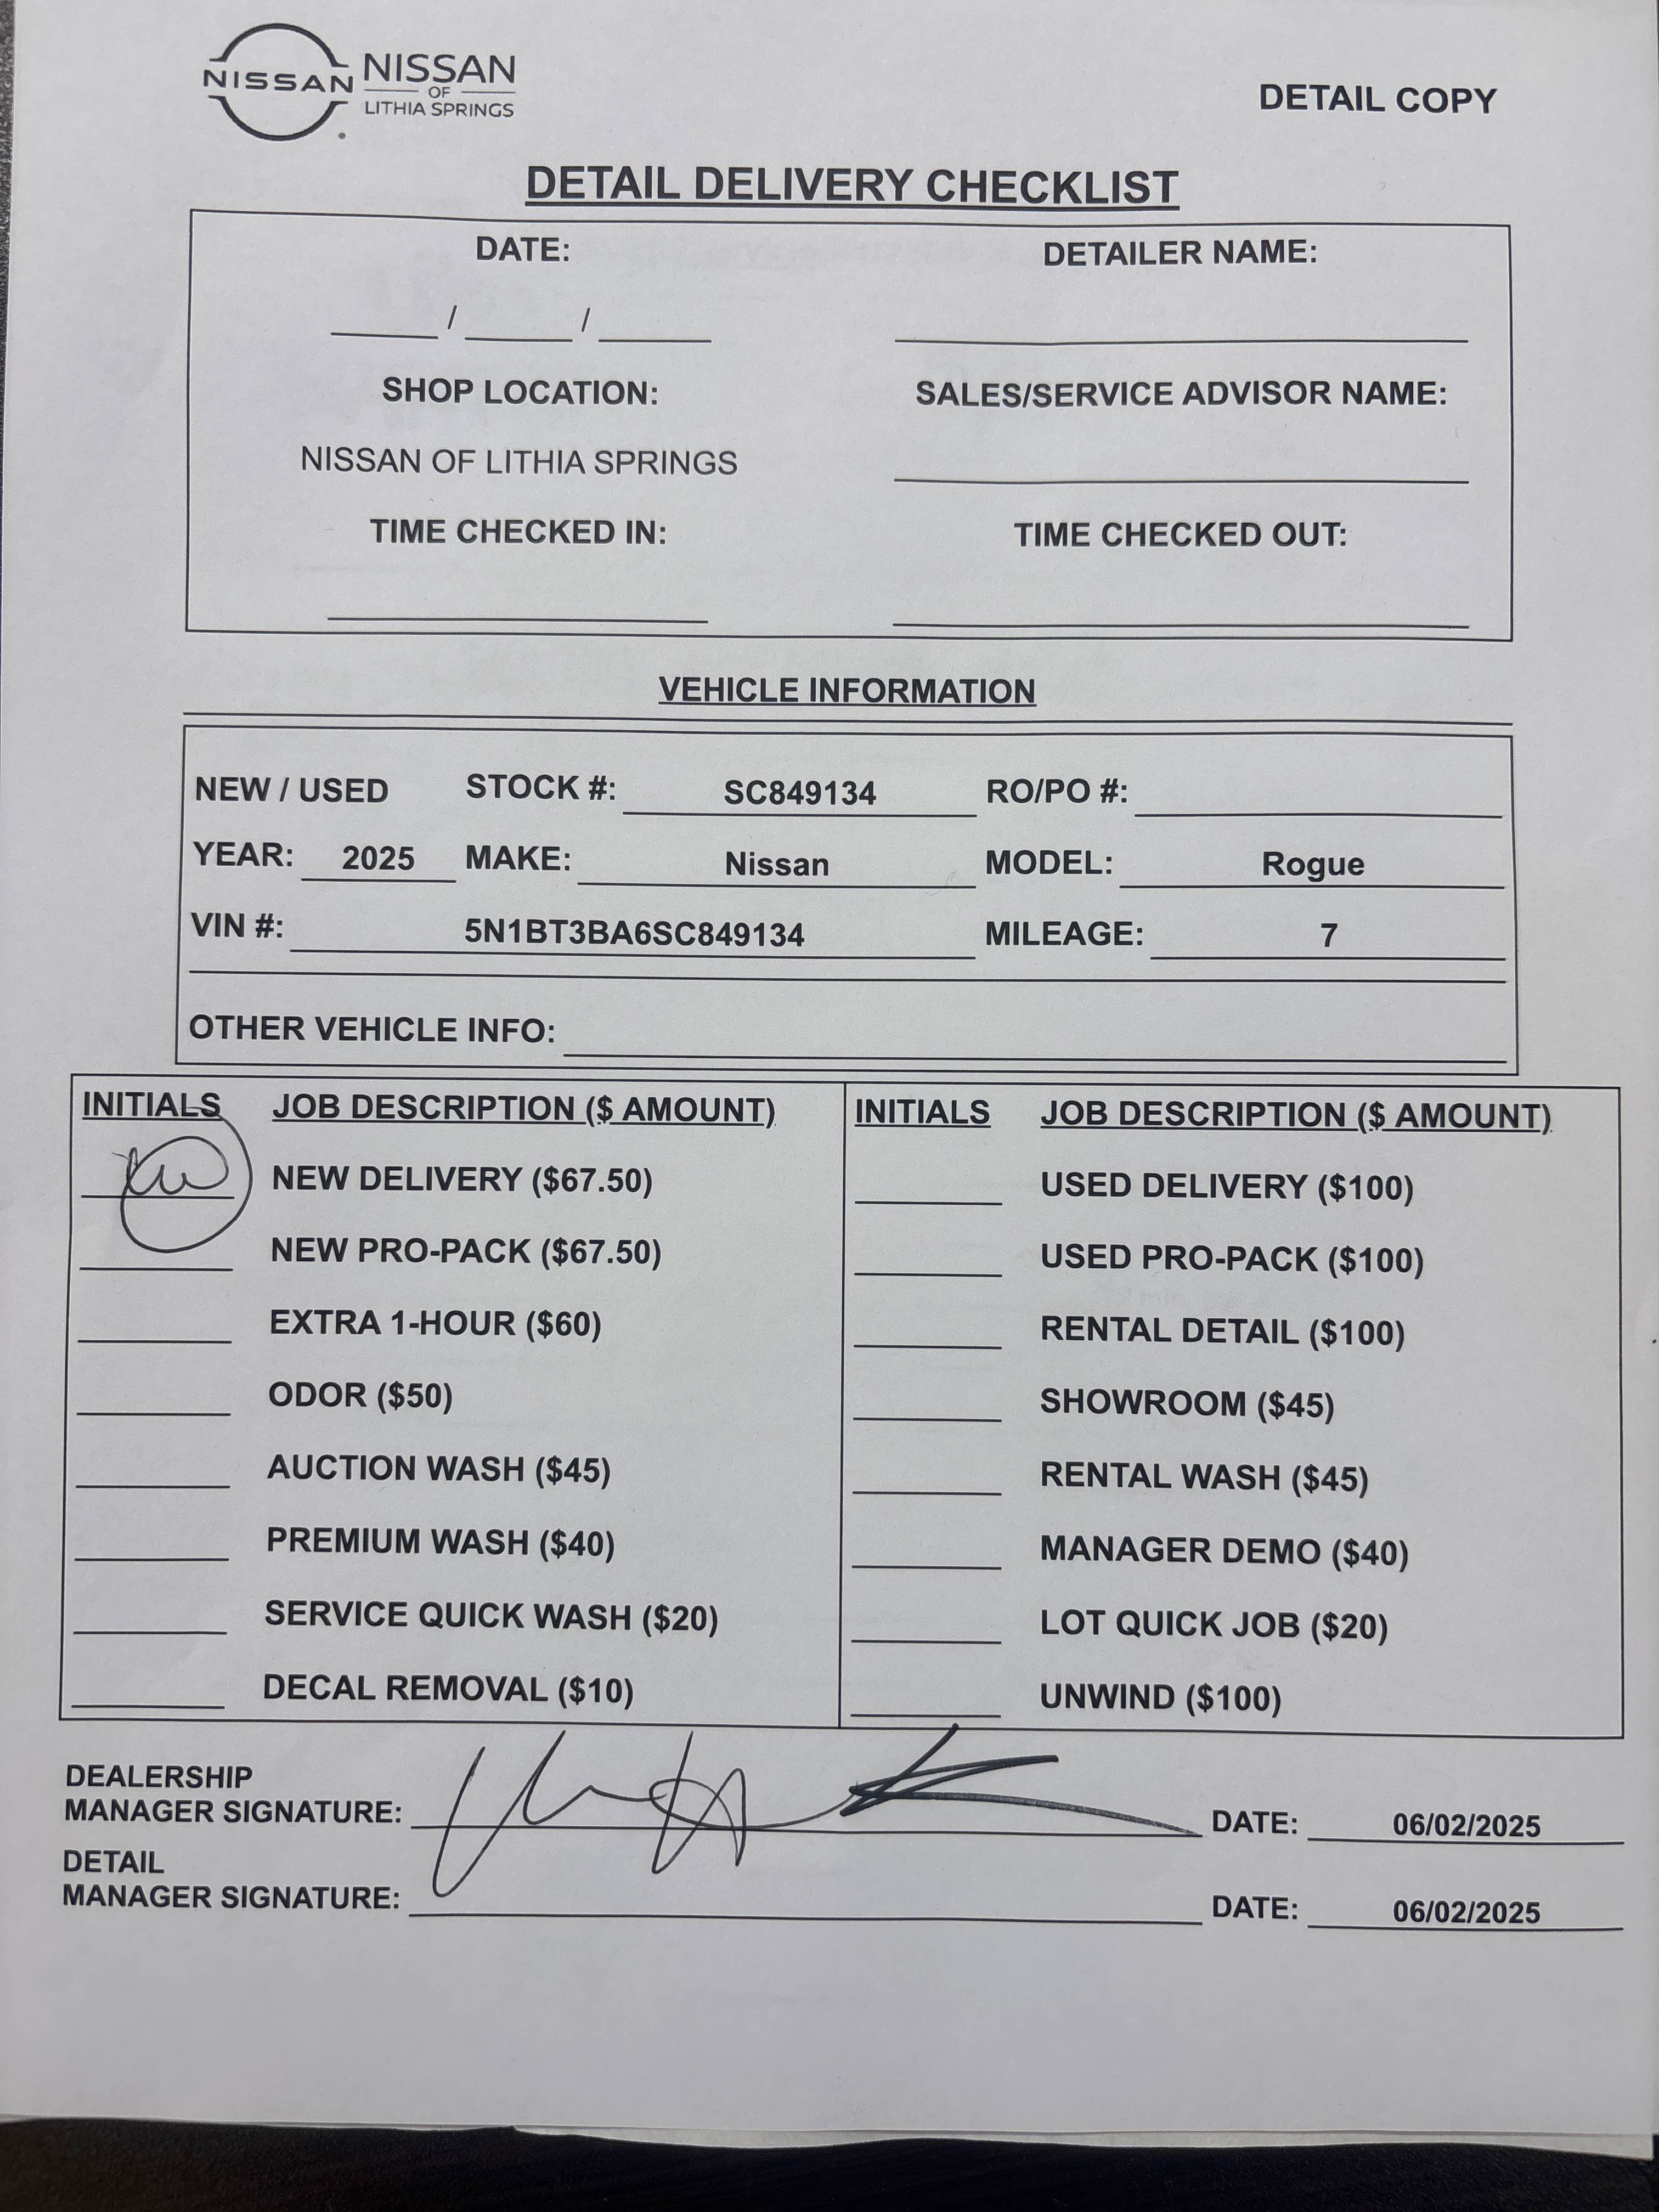 NISSAN
NISSAN
OF
LITHIA SPRINGS
DETAIL COPY
DETAIL DELIVERY CHECKLIST
DATE: DETAILER NAME:
____ / ____ / ____ ____
SHOP LOCATION: SALES/SERVICE ADVISOR NAME:
NISSAN OF LITHIA SPRINGS
TIME CHECKED IN: TIME CHECKED OUT:
VEHICLE INFORMATION
NEW / USED STOCK #: SC849134 RO/PO #:
YEAR: 2025 MAKE: Nissan MODEL: Rogue
VIN #: 5N1BT3BA6SC849134 MILEAGE: 7
OTHER VEHICLE INFO:
INITIALS JOB DESCRIPTION ($ AMOUNT) INITIALS JOB DESCRIPTION ($ AMOUNT)
NEW DELIVERY ($67.50) USED DELIVERY ($100)
NEW PRO-PACK ($67.50) USED PRO-PACK ($100)
EXTRA 1-HOUR ($60) RENTAL DETAIL ($100)
ODOR ($50) SHOWROOM ($45)
AUCTION WASH ($45) RENTAL WASH ($45)
PREMIUM WASH ($40) MANAGER DEMO ($40)
SERVICE QUICK WASH ($20) LOT QUICK JOB ($20)
DECAL REMOVAL ($10) UNWIND ($100)
DEALERSHIP
MANAGER SIGNATURE: DATE: 06/02/2025
DETAIL
MANAGER SIGNATURE: DATE: 06/02/2025